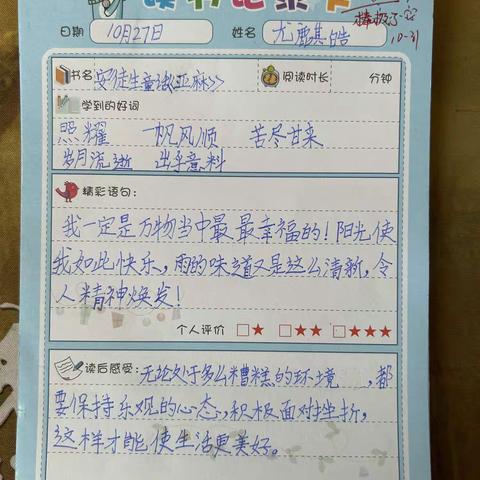 读书记录卡
日期 10月27日 姓名
10-31
书名 安徒生童话《亚麻》 阅读时长 分钟
学到的好词
照耀 一帆风顺 苦尽甘来
岁月流逝 出乎意料
精彩语句:
我一定是万物当中最最幸福的!阳光使
我如此快乐,雨的味道又是这么清新,令
人精神焕发!
个人评价 □★ □★★ □★★★
读后感受: 无论处于多么糟糕的环境,都
要保持乐观的心态,积极面对挫折,
这样才能使生活更美好。